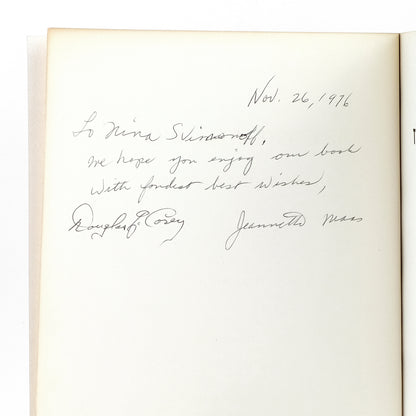 Nov. 26, 1976
To Nina
We hope you enjoy our book
With fondest best wishes,
Douglas Corey Jeannette Maas